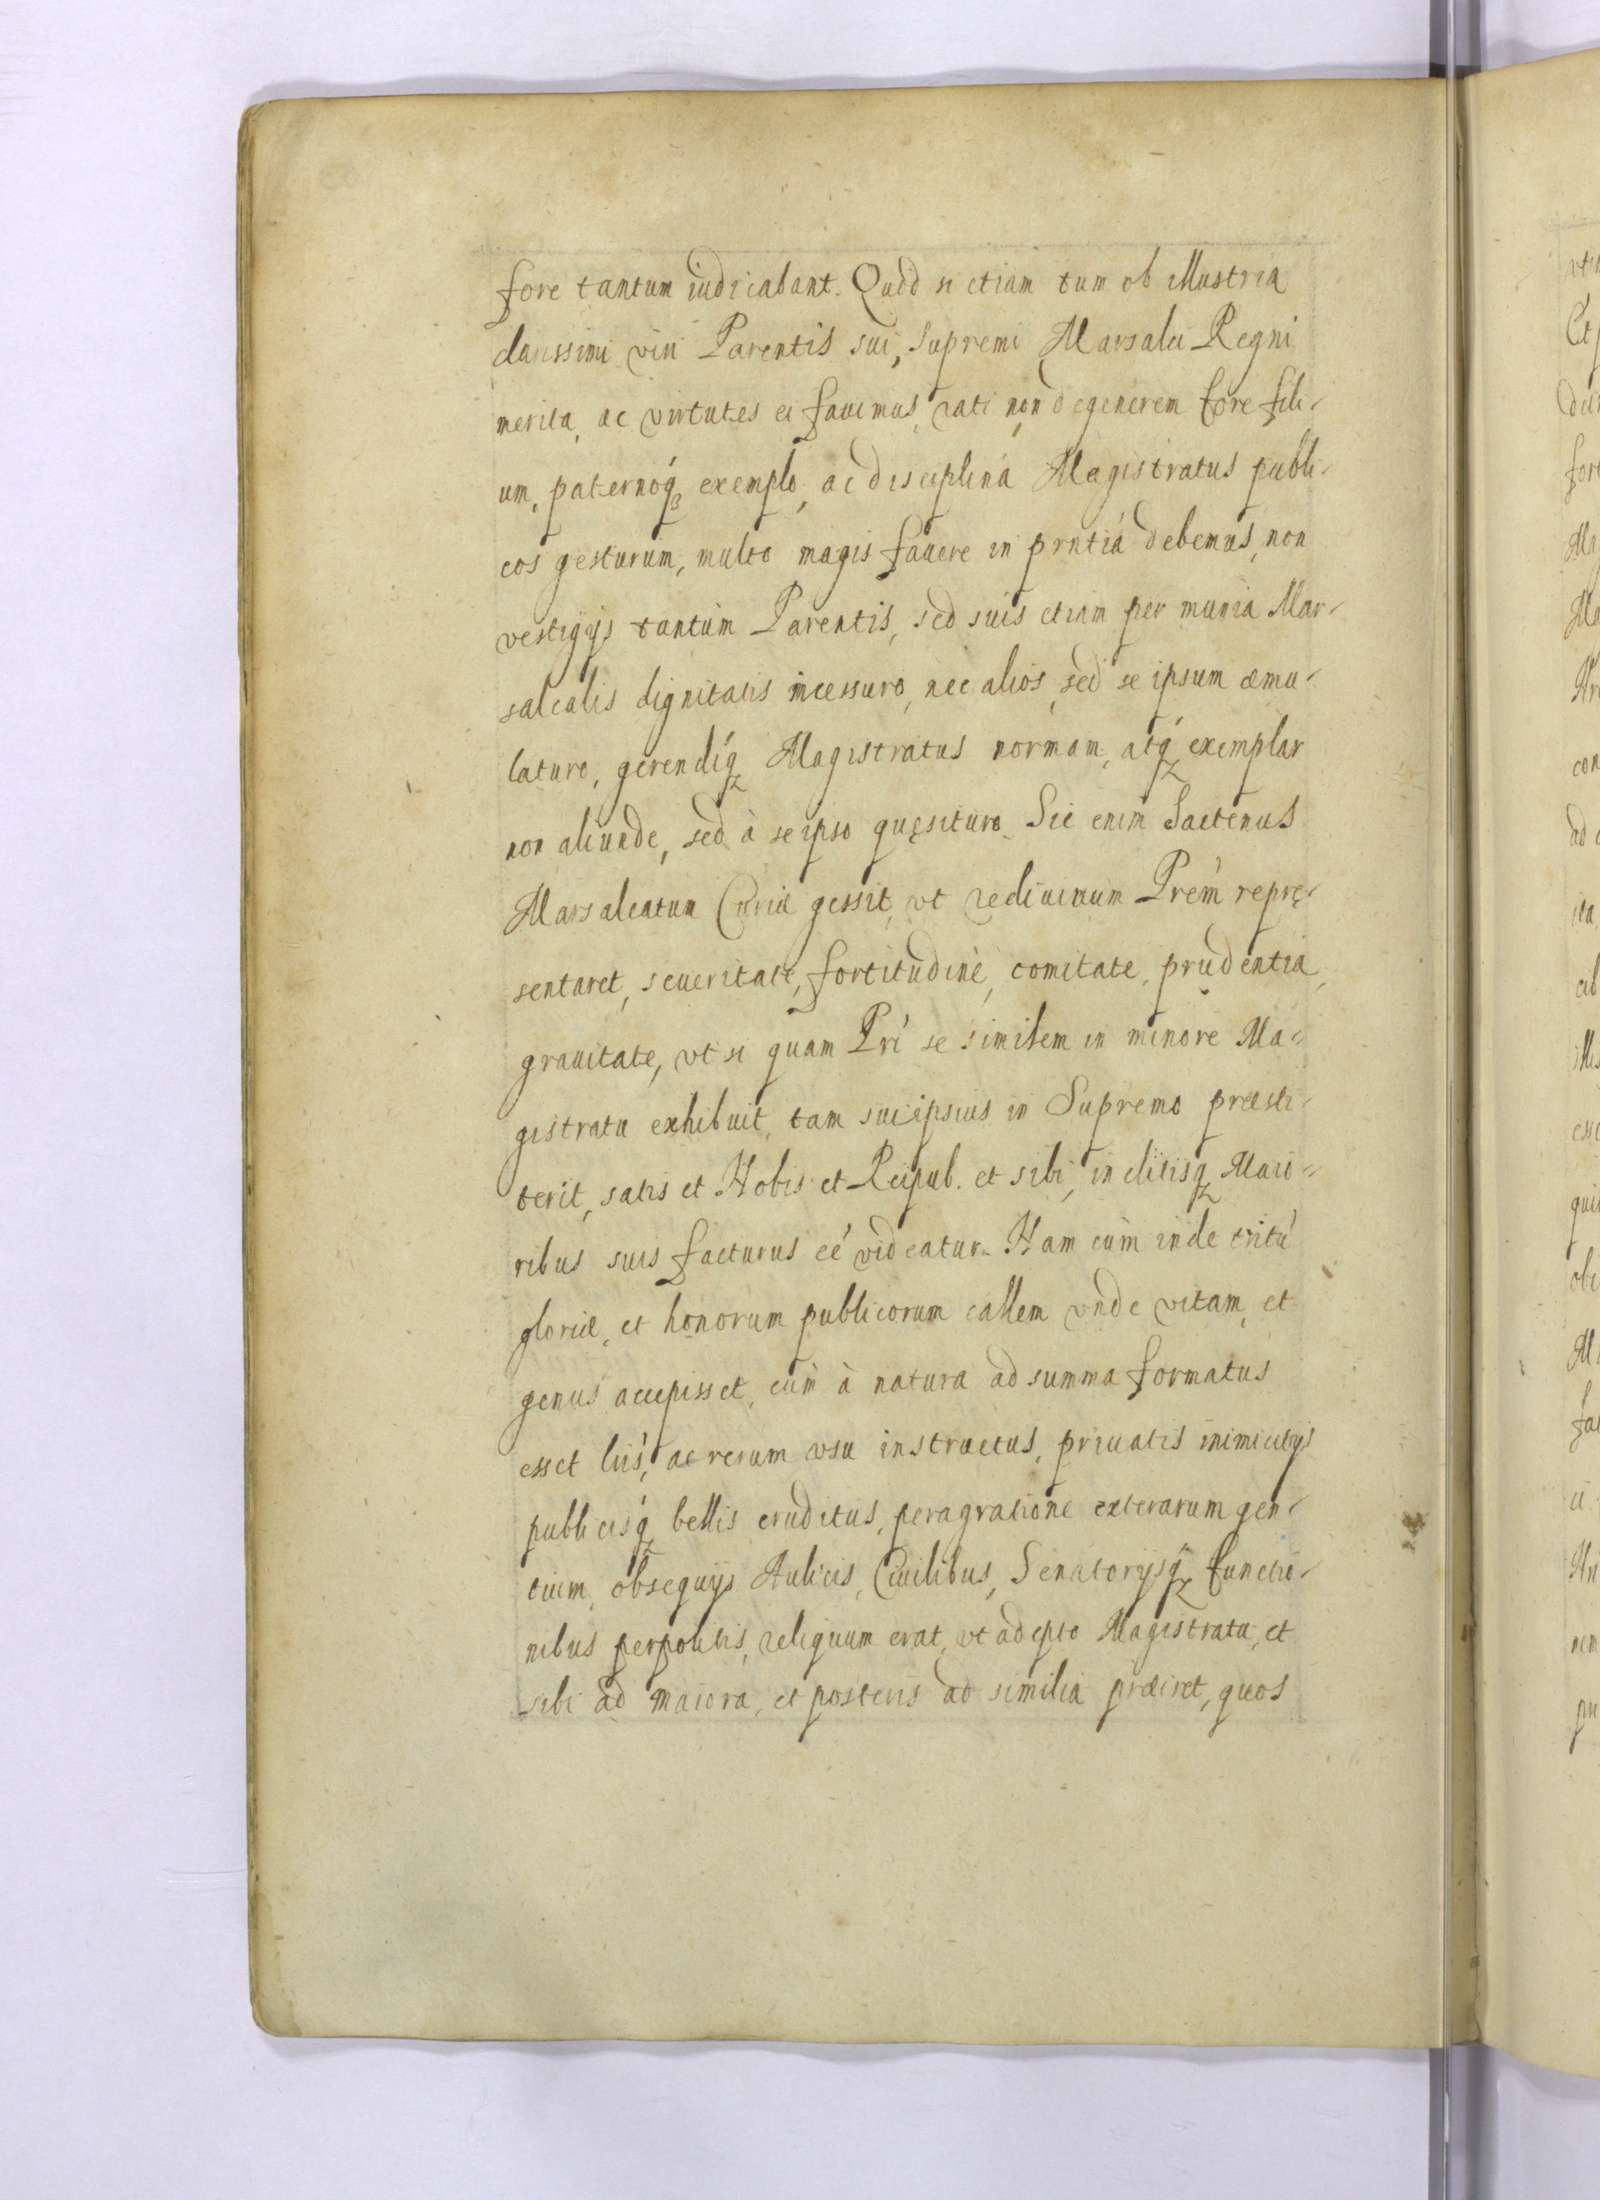 fore tantum iudicabant. Quòd si etiam tum ob illustria
clarissimi viri Parentis sui, Supremi Marsalci Regni
merita, ac virtutes ei fauimus, rati non degenerem fore fili-
um, paternoq́ꝫ exemplo, ac disciplinâ Magistratus publi-
cos gesturum, multo magis fauere in prńtiâ debemus, non
vestigijs tantùm Parentis, sed suis etiam per munia Mar-
salcalis dignitatis incessuro, nec alios, sed se ipsum æmu-
laturo, gerendiq́ꝫ Magistratus normam, atq́ꝫ exemplar
non aliunde, sed à seipso quęsituro. Sic enim hactenus
Marsalcatum Curiæ gessit, vt rediuiuum Prém reprę-
sentaret, seueritate, fortitudine, comitate, prudentia,
grauitate, vt si quam Prí se similem in minore Ma-
gistratu exhibuit, tam sui ipsius in Supremo præsti-
terit, satis et Nobis et Reipub. et sibi, inclitisqꝫ Maio-
ribus suis facturus eé videatur. Nam cùm inde tritú
gloriæ, et honorum publicorum callem vnde vitam, et
genus accepisset, cùm à natura ad summa formatus
esset lrís, ac rerum vsu instructus, priuatis inimicitijs
publicisq́ꝫ bellis eruditus, peragratione exterarum gen-
tium, obsequijs Aulicis, Ciuilibus, Senatorijsq́ꝫ functio-
nibus perpolitis, reliquum erat, vt adepto Magistratu, et
sibi ad maiora, et posteris ad similia præiret, quos